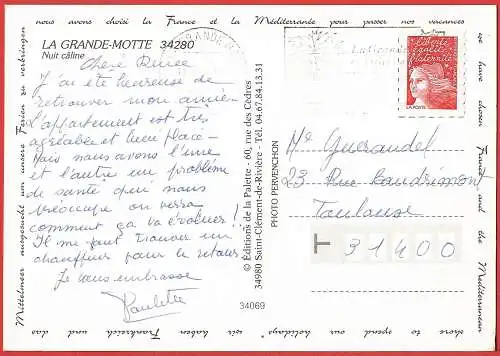 nous avons choisi la France et la Méditerranée pour passer nos vacances
we have chosen France and the Mediterranean
shore to spend our holidays
wir haben Frankreich und das
Mittelmeer ausgesucht um unsere Ferien zu verbringen
LA GRANDE-MOTTE 34280
Nuit câline
Chère Renée
J'ai été heureuse de
retrouver mon amie
L'appartement est très
agréable et bien placé
Mais nous avons l'une
et l'autre un problème
de santé qui nous
préoccupe on verra
comment ça va évoluer !
Il me faut trouver un
chauffeur pour le retour
Je vous embrasse
Paulette
© Editions de la Palette - 60, rue des Cèdres
34980 Saint-Clément-de-Rivière - Tél. 04.67.84.13.31
PHOTO PERVENCHON
34069
GRANDE
liberté
égalité
fraternité
LA POSTE
Guerandel
23 Rue Caudrimont
Toulouse
T 31400